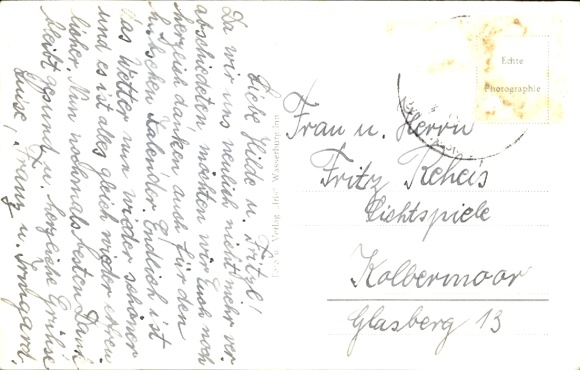 Liebe Hilde u. Fritzl!
Da wir uns neulich nicht mehr ver
abschiedeten möchten wir Euch noch
herzlich danken auch für den
hübschen Kalender. Endlich ist
das Wetter nun wieder schöner
und es ist alles gleich wieder
licher. Nun nochmals besten Dank
bleibt gesund u. herzliche Grüsse
Luise, Franz u. Irmgard.
Echte
Photographie
Frau u. Herrn
Fritz Reheis
Lichtspiele
Kolbermoor
Glasberg 13
Verlag Wasserburg Inn